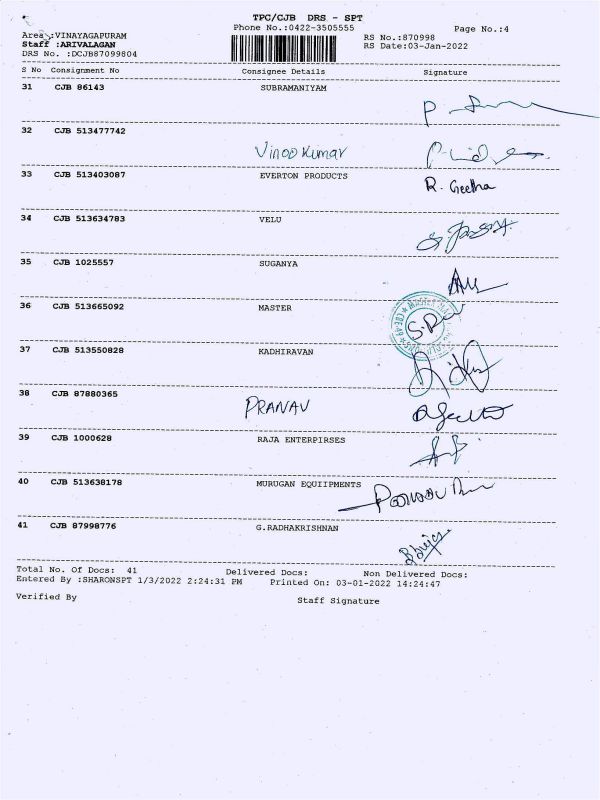 TPC/CJB DRS - SPT
Phone No.:0422-3505555 Page No.:4
Area :VINAYAGAPURAM RS No.:870998
Staff :ARIVALAGAN RS Date:03-Jan-2022
DRS No. :DCJB87099804
S No Consignment No Consignee Details Signature
31 CJB 86143 SUBRAMANIYAM
32 CJB 513477742
Vinod Kumar
33 CJB 513403087 EVERTON PRODUCTS R. Geetha
34 CJB 513634783 VELU
35 CJB 1025557 SUGANYA
36 CJB 513665092 MASTER
37 CJB 513550828 KADHIRAVAN
38 CJB 87880365
PRANAV
39 CJB 1000628 RAJA ENTERPIRSES
40 CJB 513638178 MURUGAN EQUIIPMENTS
41 CJB 87998776 G.RADHAKRISHNAN
Total No. Of Docs: 41 Delivered Docs: Non Delivered Docs:
Entered By :SHARONSPT 1/3/2022 2:24:31 PM Printed On: 03-01-2022 14:24:47
Verified By Staff Signature